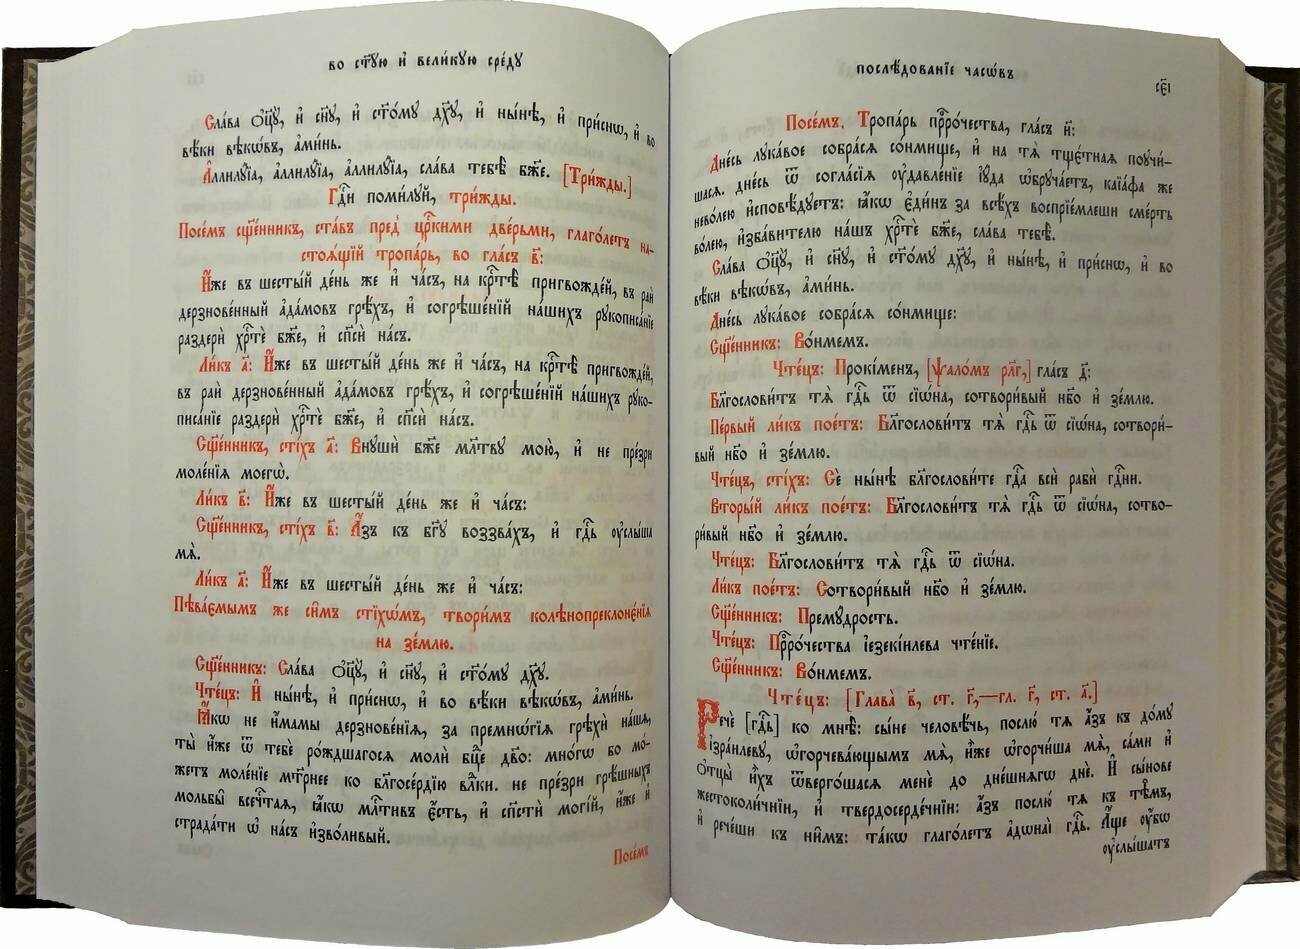 во ст҃ꙋю и҆ вели́кꙋю сре́дꙋ
Сла́ва ѻ҆ц҃ꙋ̀, и҆ сн҃ꙋ, и҆ ст҃о́мꙋ дх҃ꙋ, и҆ ны́нѣ, и҆ при́снѡ, и҆ во
вѣ́ки вѣкѡ́въ, а҆ми́нь.
А҆ллилꙋ́їа, а҆ллилꙋ́їа, а҆ллилꙋ́їа, сла́ва тебѣ̀ бж҃е. [Три́жды.]
Гдⷭ҇и поми́лꙋй, три́жды.
Посе́мъ сщ҃е́нникъ, ста́въ пред̾ црⷭ҇кими две́рьми, глаго́летъ на-
стоѧ́щїй тропа́рь, во гла́съ в҃:
И҆́же въ шесты́й де́нь же и҆ ча́съ, на крⷭ҇тѣ̀ пригвожде́й, въ раѝ
дерзнове́нный а҆да́мовъ грѣ́хъ, и҆ согрѣше́нїй на́шихъ рꙋкописа́нїе
раздерѝ хрⷭ҇тѐ бж҃е, и҆ сп҃сѝ на́съ.
Ли́къ а҃: И҆́же въ шесты́й де́нь же и҆ ча́съ, на крⷭ҇тѣ̀ пригвожде́й,
въ раѝ дерзнове́нный а҆да́мовъ грѣ́хъ, и҆ согрѣше́нїй на́шихъ рꙋко-
писа́нїе раздерѝ хрⷭ҇тѐ бж҃е, и҆ сп҃сѝ на́съ.
Сщ҃е́нникъ, сті́хъ а҃: Внꙋшѝ бж҃е мл҃твꙋ мою̀, и҆ не пре́зри
моле́нїѧ моегѡ̀.
Ли́къ в҃: И҆́же въ шесты́й де́нь же и҆ ча́съ:
Сщ҃е́нникъ, сті́хъ в҃: А҆́зъ къ бг҃ꙋ воззва́хъ, и҆ гдⷭ҇ь ᲂу҆слы́ша
мѧ̀.
Ли́къ а҃: И҆́же въ шесты́й де́нь же и҆ ча́съ:
Пѣва́ємымъ же си̑мъ стїхѡ́мъ, твори́мъ кѡлѣнопреклонє́нїѧ
на зе́млю.
Сщ҃е́нникъ: Сла́ва ѻ҆ц҃ꙋ̀, и҆ сн҃ꙋ, и҆ ст҃о́мꙋ дх҃ꙋ.
Чте́цъ: И҆ ны́нѣ, и҆ при́снѡ, и҆ во вѣ́ки вѣкѡ́въ, а҆ми́нь.
Ꙗ҆́кѡ не и҆́мамы дерзнове́нїѧ, за премнѡ́гїѧ грѣхѝ на́шѧ,
ты̀ и҆́же ѿ тебє̀ ро́ждшагосѧ молѝ бц҃е дв҃о: мно́гѡ бо мо́-
жетъ моле́нїе мт҃рнее ко бл҃госе́рдїю влⷣки. не пре́зри грѣ́шныхъ
мольбы̀ всечⷭ҇таѧ, ꙗ҆́кѡ млⷭ҇тивъ є҆́сть, и҆ сп҃стѝ могі́й, и҆́же и҆
страда́ти ѡ҆ на́съ и҆зво́ливый.
Посе́мъ
послѣ́дованїе часѡ́въ
сє҃і
Посе́мъ, Тропа́рь прⷪ҇ро́чества, гла́съ и҃:
Дне́сь лꙋка́вое собра́сѧ со́нмище, и҆ на тѧ̀ тщє́тнаѧ поꙋчи́-
шасѧ. дне́сь ѿ согла́сїѧ ᲂу҆давле́нїе і҆ꙋ́да ѡ҆брꙋча́етъ, каїа́фа же
нево́лею и҆сповѣ́дꙋетъ: ꙗ҆́кѡ є҆ди́нъ за всѣ́хъ воспрїе́млеши сме́рть
во́лею, и҆зба́вителю на́шъ хрⷭ҇тѐ бж҃е, сла́ва тебѣ̀.
Сла́ва ѻ҆ц҃ꙋ̀, и҆ сн҃ꙋ, и҆ ст҃о́мꙋ дх҃ꙋ, и҆ ны́нѣ, и҆ при́снѡ, и҆ во
вѣ́ки вѣкѡ́въ, а҆ми́нь.
Дне́сь лꙋка́вое собра́сѧ со́нмище:
Сщ҃е́нникъ: Во́нмемъ.
Чте́цъ: Прокі́менъ, [ѱало́мъ рл҃г,] гла́съ д҃:
Бл҃гослови́тъ тѧ̀ гдⷭ҇ь ѿ сїѡ́на, сотвори́вый нб҃о и҆ зе́млю.
Пе́рвый ли́къ пое́тъ: Бл҃гослови́тъ тѧ̀ гдⷭ҇ь ѿ сїѡ́на, сотвори́-
вый нб҃о и҆ зе́млю.
Чте́цъ, сті́хъ: Сѐ ны́нѣ бл҃гослови́те гдⷭ҇а всѝ рабѝ гдⷭ҇ни.
Вторы́й ли́къ пое́тъ: Бл҃гослови́тъ тѧ̀ гдⷭ҇ь ѿ сїѡ́на, сотво-
ри́вый нб҃о и҆ зе́млю.
Чте́цъ: Бл҃гослови́тъ тѧ̀ гдⷭ҇ь ѿ сїѡ́на.
Ли́къ пое́тъ: Сотвори́вый нб҃о и҆ зе́млю.
Сщ҃е́нникъ: Премꙋ́дрость.
Чте́цъ: Прⷪ҇ро́чества і҆езекі́илева чте́нїе.
Сщ҃е́нникъ: Во́нмемъ.
Чте́цъ: [Глава̀ в҃, ст. г҃,—гл. г҃, ст. а҃.]
Речѐ [гдⷭ҇ь] ко мнѣ̀: сы́не человѣ́чь, послю̀ тѧ̀ а҆́зъ къ до́мꙋ
і҆зра́илевꙋ, ѡ҆горчева́ющымъ мѧ̀, и҆̀же ѡ҆горчи́ша мѧ̀, са́ми и҆
ѻ҆тцы̀ и҆́хъ ѿверго́шасѧ менє̀ до дне́шнѧгѡ днѐ. И҆ сы́нове
жестоколи́чнїи, и҆ твердосе́рдечнїи: а҆́зъ послю̀ тѧ̀ къ тѣ̑мъ,
и҆ рече́ши къ ни̑мъ: та́кѡ глаго́летъ а҆дѡнаѝ гдⷭ҇ь. А҆́ще ᲂу҆́бѡ
ᲂу҆слы́шатъ